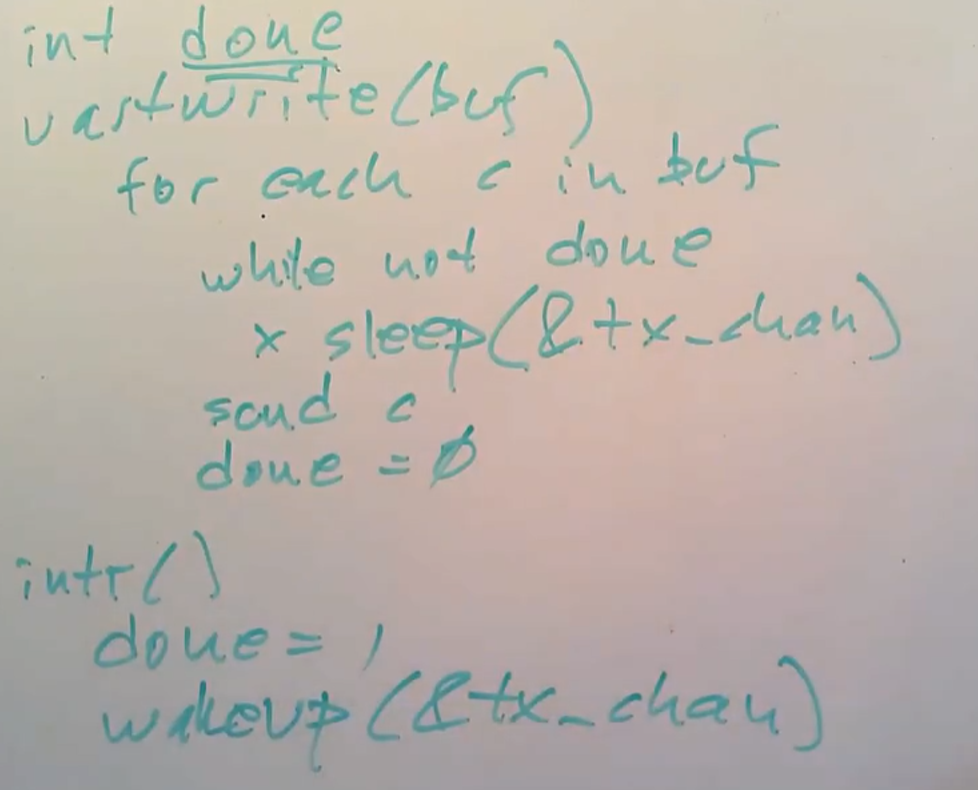 int done
uartwrite(buf)
for each c in buf
while not done
x sleep(&tx_chan)
send c
done = 0
intr()
done = 1
wakeup(&tx_chan)